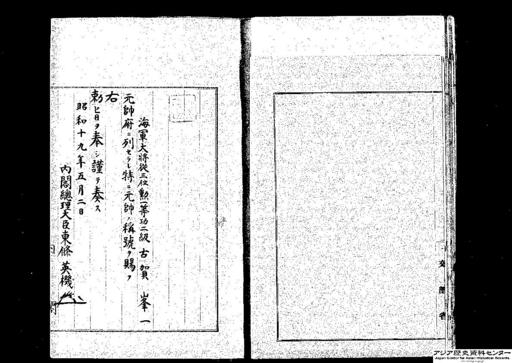 海軍大將從三位勲一等功二級 古賀峯一
元帥府ニ列セラレ特ニ元帥ノ稱號ヲ賜フ
右
勅旨ヲ奉シ謹テ奏ス
昭和十九年五月二日
內閣總理大臣東條英機
アジア歴史資料センター
Japan Center for Asian Historical Records